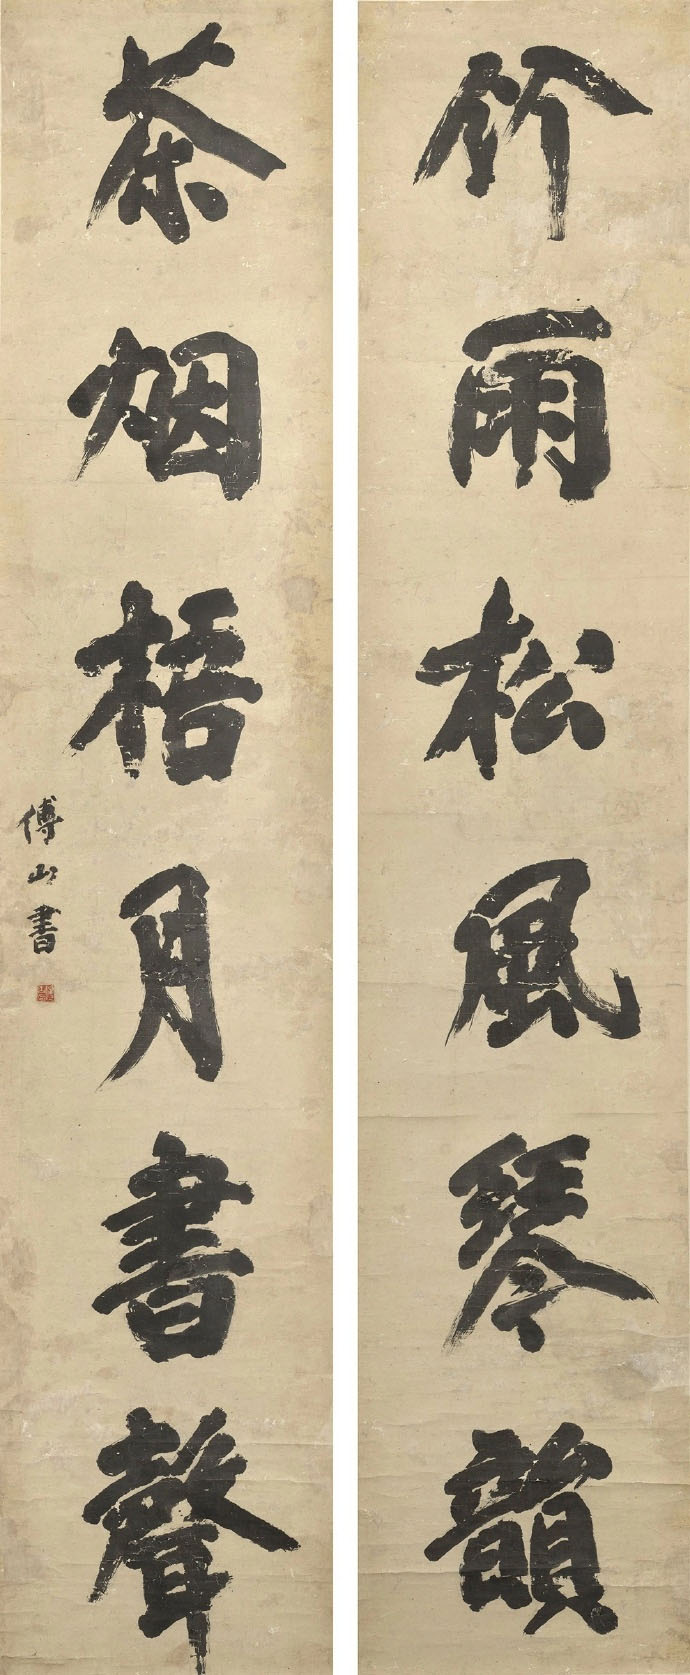 竹雨松風琴韻
茶烟梧月書聲
傅山書